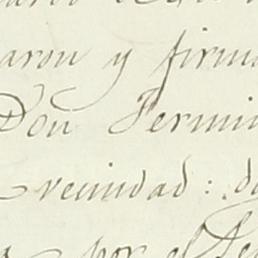 aron y firma
Don Fermin
vecindad: d
por el Te